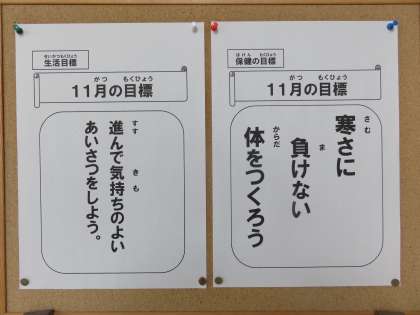 せいかつもくひょう
生活目標
がつ もくひょう
11月の目標
すす
進んで気持ちのよい
き も
あいさつをしよう。
ほけん もくひょう
保健の目標
がつ もくひょう
11月の目標
さむ
寒さに
ま
負けない
からだ
体をつくろう